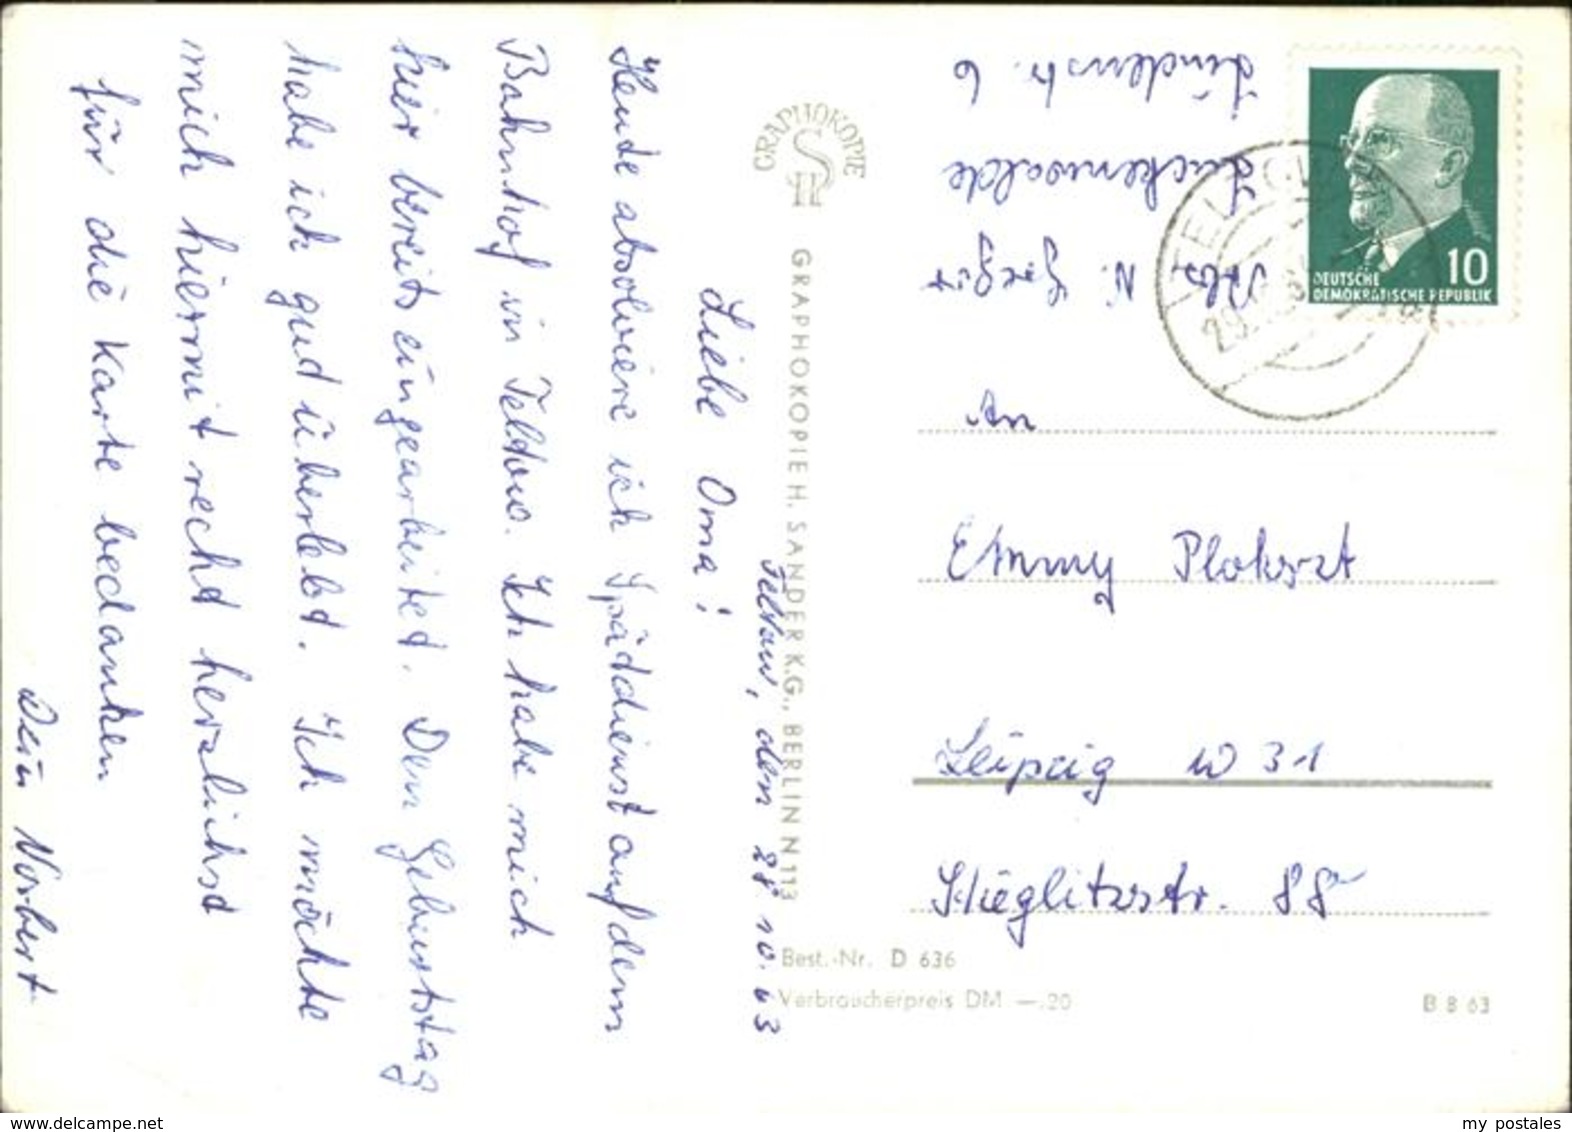 Teltow, den 28.10.63
Liebe Oma!
Heute absolviere ich Spätdienst auf dem
Bahnhof in Teltow. Ich habe mich
hier bereits eingearbeitet. Den Geburtstag
habe ich gud überlebt. Ich möchte
mich hiermit recht herzlichst
für die Karte bedanken
Dein Norbert
GRAPHOKOPIE
GRAPHOKOPIE H. SANDER K.G., BERLIN N 113
Abs. N. Gregor
Luckenwalde
Lindenstr. 6
10
DEUTSCHE
DEMOKRATISCHE REPUBLIK
An
Emmy Plokszt
Leipzig W 31
Stieglitzstr. 88
Best.-Nr. D 636
Verbraucherpreis DM —.20
B 8 63
delcampe.net
my_postales